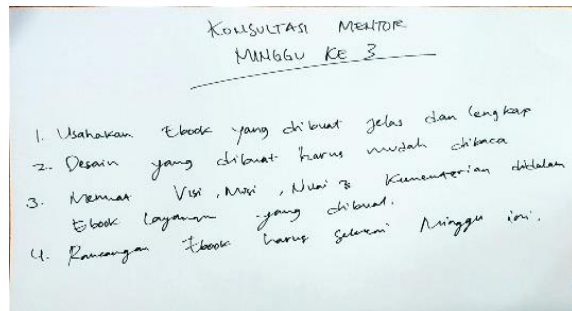 KONSULTASI MENTOR
MINGGU KE 3
1. Usahakan Ebook yang dibuat jelas dan lengkap
2. Desain yang dibuat harus mudah dibaca
3. Memuat Visi, Misi, Nilai2 Kementerian didalam
Ebook layanan yang dibuat.
4. Rancangan Ebook harus selesai Minggu ini.